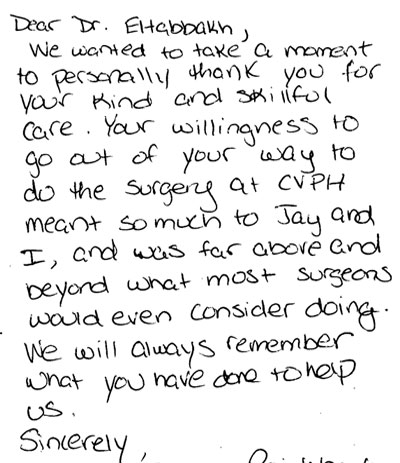 Dear Dr. Eltabbakh,
We wanted to take a moment
to personally thank you for
your kind and skillful
care. Your willingness to
go out of your way to
do the surgery at CVPH
meant so much to Jay and
I, and was far above and
beyond what most surgeons
would even consider doing.
We will always remember
what you have done to help
us.
Sincerely,